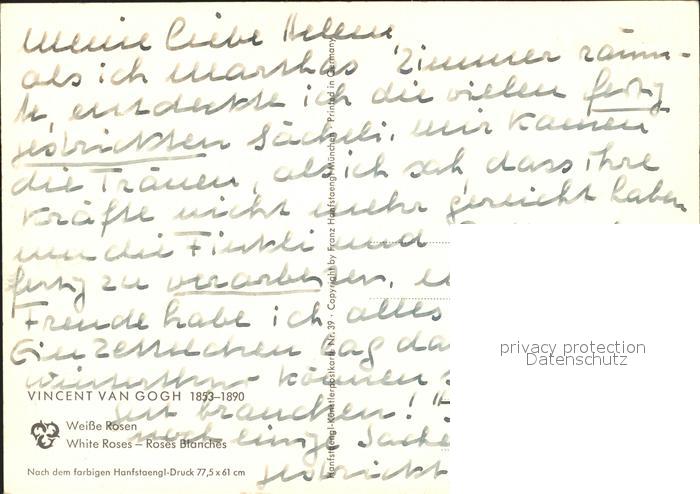 Meine liebe Helene
als ich Marthas Zimmer räum-
te, entdeckte ich die vielen fertig
gestrickten Sächeli. Mir kamen
die Tränen, als ich sah, dass ihre
Kräfte nicht mehr gereicht haben
um die Finkli und
fertig zu verarbeiten,
Freude habe ich alles
Ein Zettelchen lag
Winterthur können
gut brauchen!
noch einige Sache
gestrickt
privacy protection
Datenschutz
VINCENT VAN GOGH 1853–1890
Weiße Rosen
White Roses – Roses Blanches
Nach dem farbigen Hanfstaengl-Druck 77,5 x 61 cm
Hanfstaengl-Künstlerpostkarte Nr. 39 · Copyright by Franz Hanfstaengl München · Printed in Germany